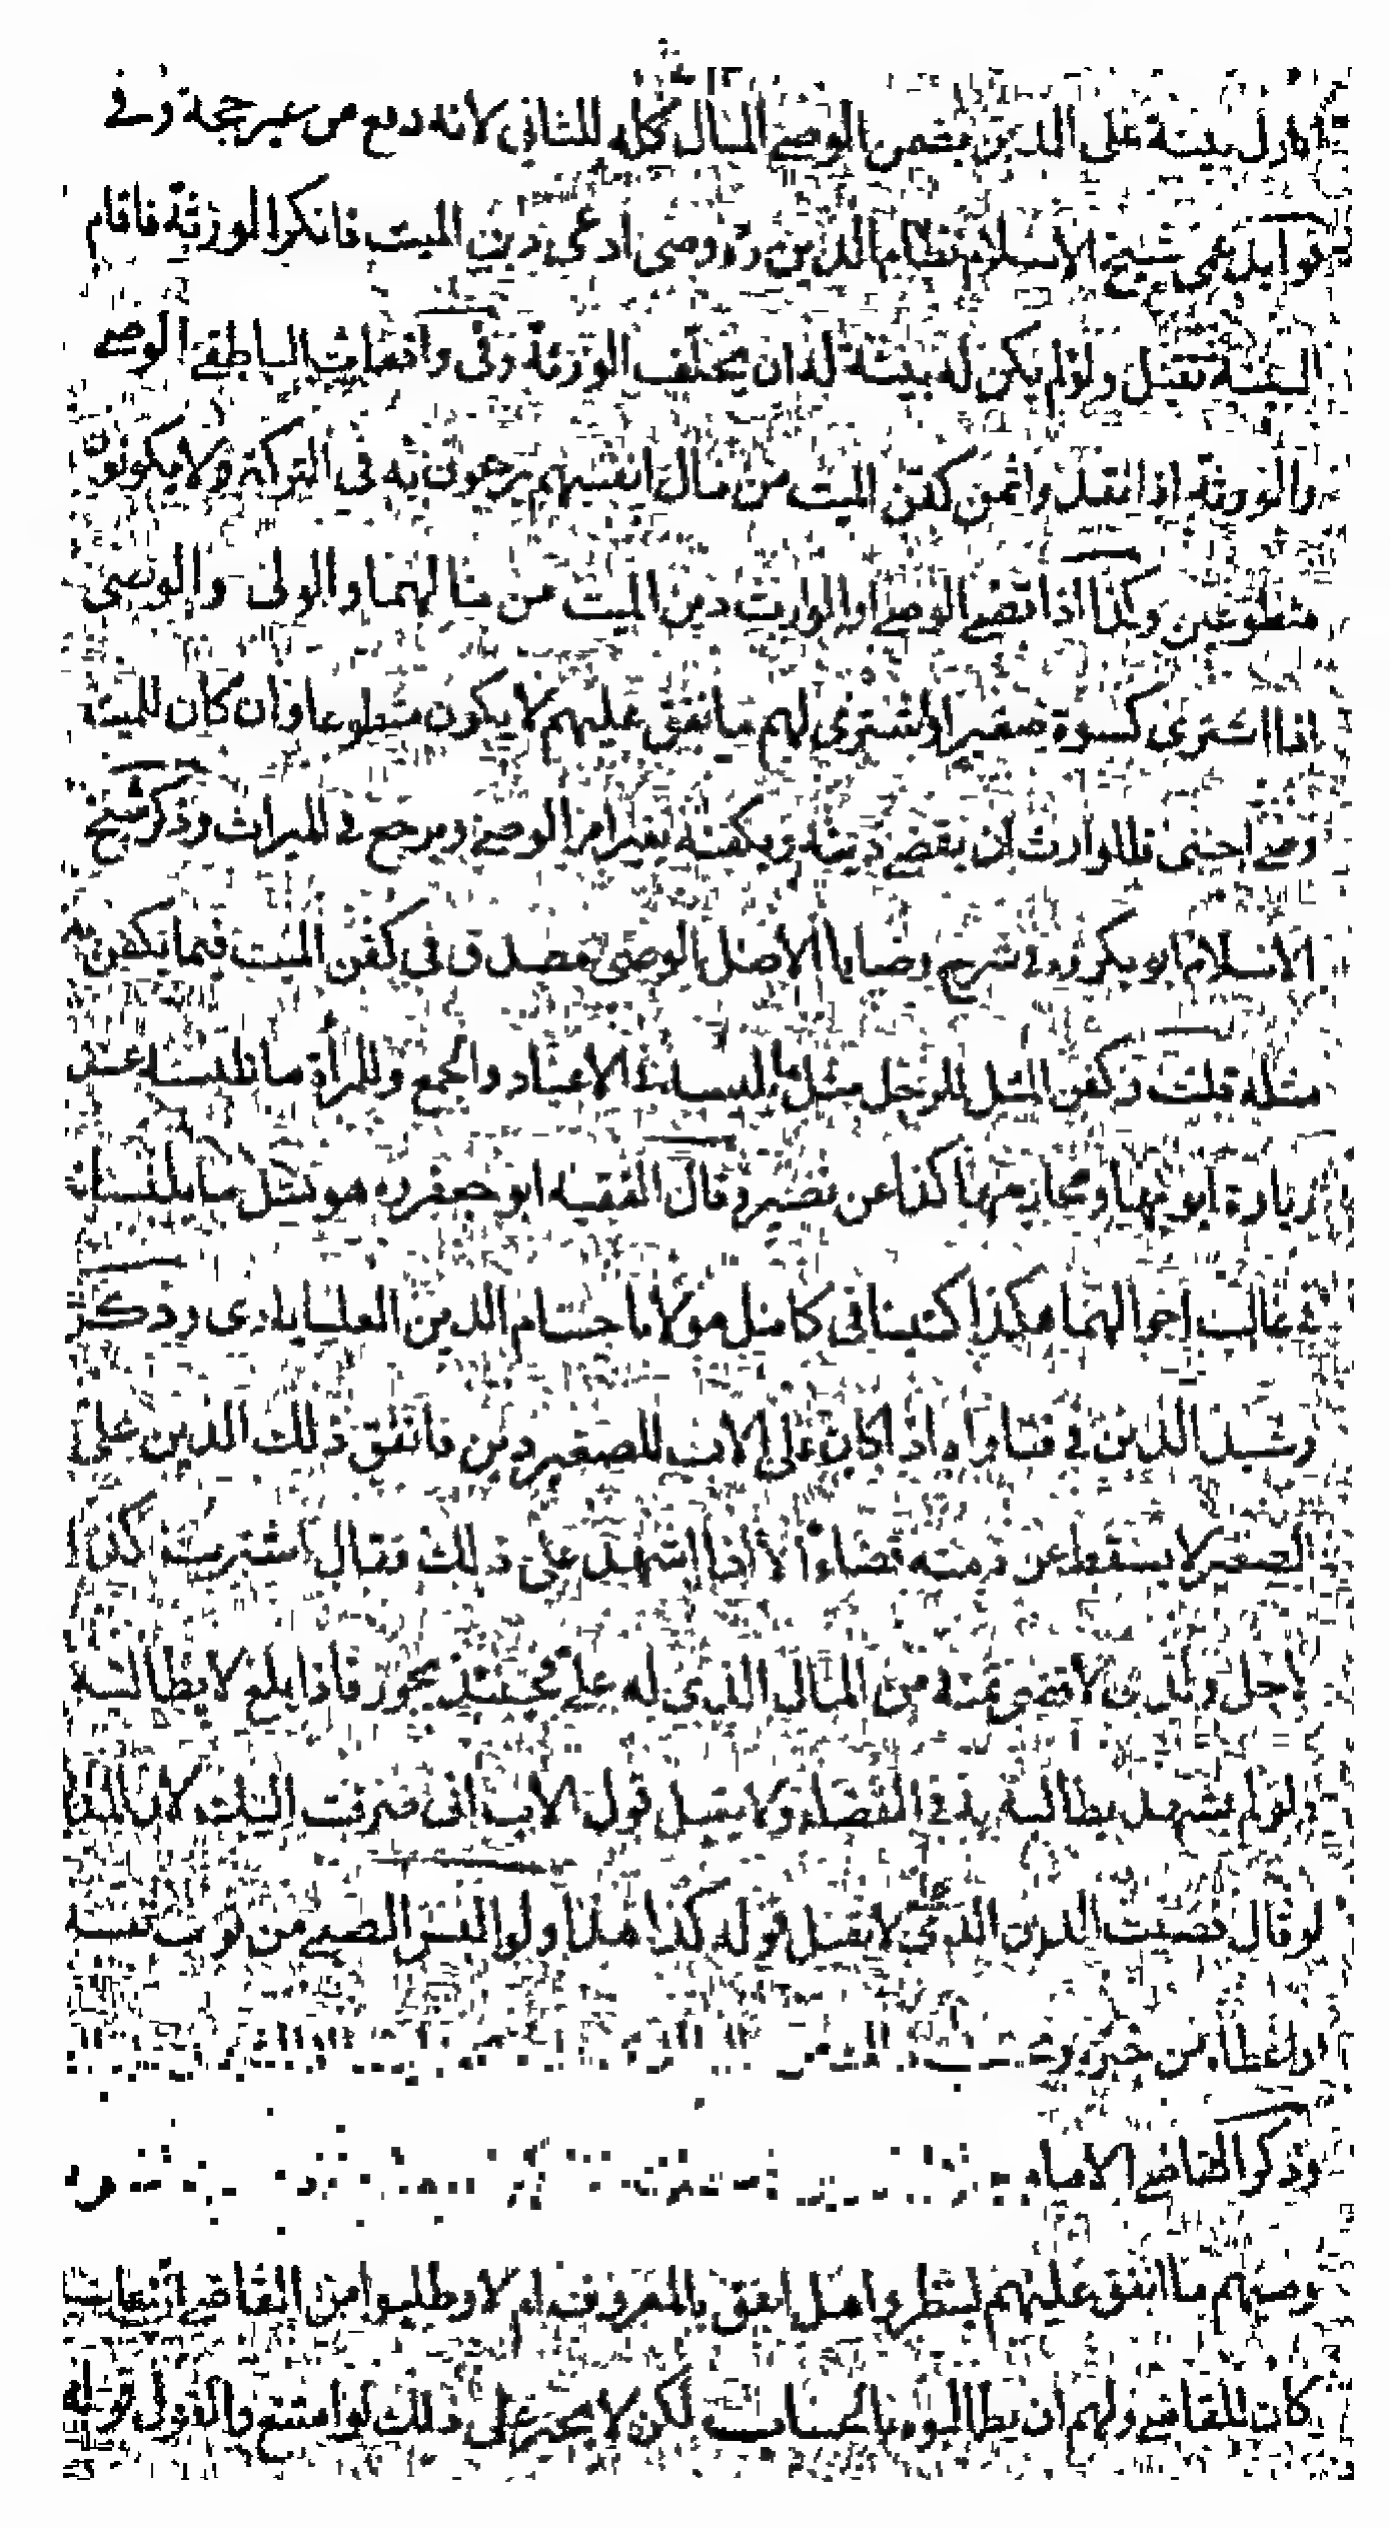 بينة على الدين يضمن الوصي المال كله للثاني لانه دفع من غير حجة وفي
فوايد عمي شيخ الاسلام نظام الدين ره وصي ادعى دين الميت فانكر الورثة فاقام
البينة تقبل ولو لم يكن له بينة له ان يحلف الورثة وفي واقعات الناطفي الوصي
والورثة اذا كفن الميت من مال انفسهم يرجعون به في التركة ولا يكونون
متطوعين وكذا اذا قضى الوصي او الوارث دين الميت من مالهما والولي والوصي
اذا اشترى كسوة صغير او اشترى لهم ما ينفق عليهم لا يكون متطوعا وان كان للميت
وصي اجنبي فللوارث ان يقضي دينه ويكفنه بغير امر الوصي ويرجع في الميراث وذكر شيخ
الاسلام ابو بكر ره في شرح وصايا الاصل الوصي يصدق في كفن الميت فيما يكفن
مثله قلت وكفن المثل للرجل مثل ما يلبسه في الاعياد والجمع وللمرأة ما تلبسه عند
زيارة ابويها ومحارمها كذا عن نصير وقال الفقيه ابو جعفر ره هو مثل ما يلبسان
في غالب احوالهما هكذا كتبنا في كامل مولانا حسام الدين العليابادي وذكر
رشيد الدين في فتاواه اذا كان على الاب للصغير دين فانفق ذلك الدين على
الصغير لا يسقط عن ذمته قضاء الا اذا اشهد على ذلك فقال اشتريت كذا
لاجل ولدي لاقضي ثمنه من المال الذي له علي فحينئذ يجوز فاذا بلغ لا يطالبه
ولو لم يشهد يطالبه به في القضاء ولا يقبل قول الاب اني صرفت اليك
لو قال قضيت الدين الذي لا يقبل قوله كذا هذا ولو البس الصبي من ثوب نفسه
او اعطاه من خبزه
وذكر القاضي الامام
وصيهم ما انفق عليهم لينظروا هل انفق بالمعروف ام لا وطلبوا من القاضي
كان للقاضي ولهم ان يطالبوه بالحساب لكن لا يجبر على ذلك لو امتنع والقول قوله